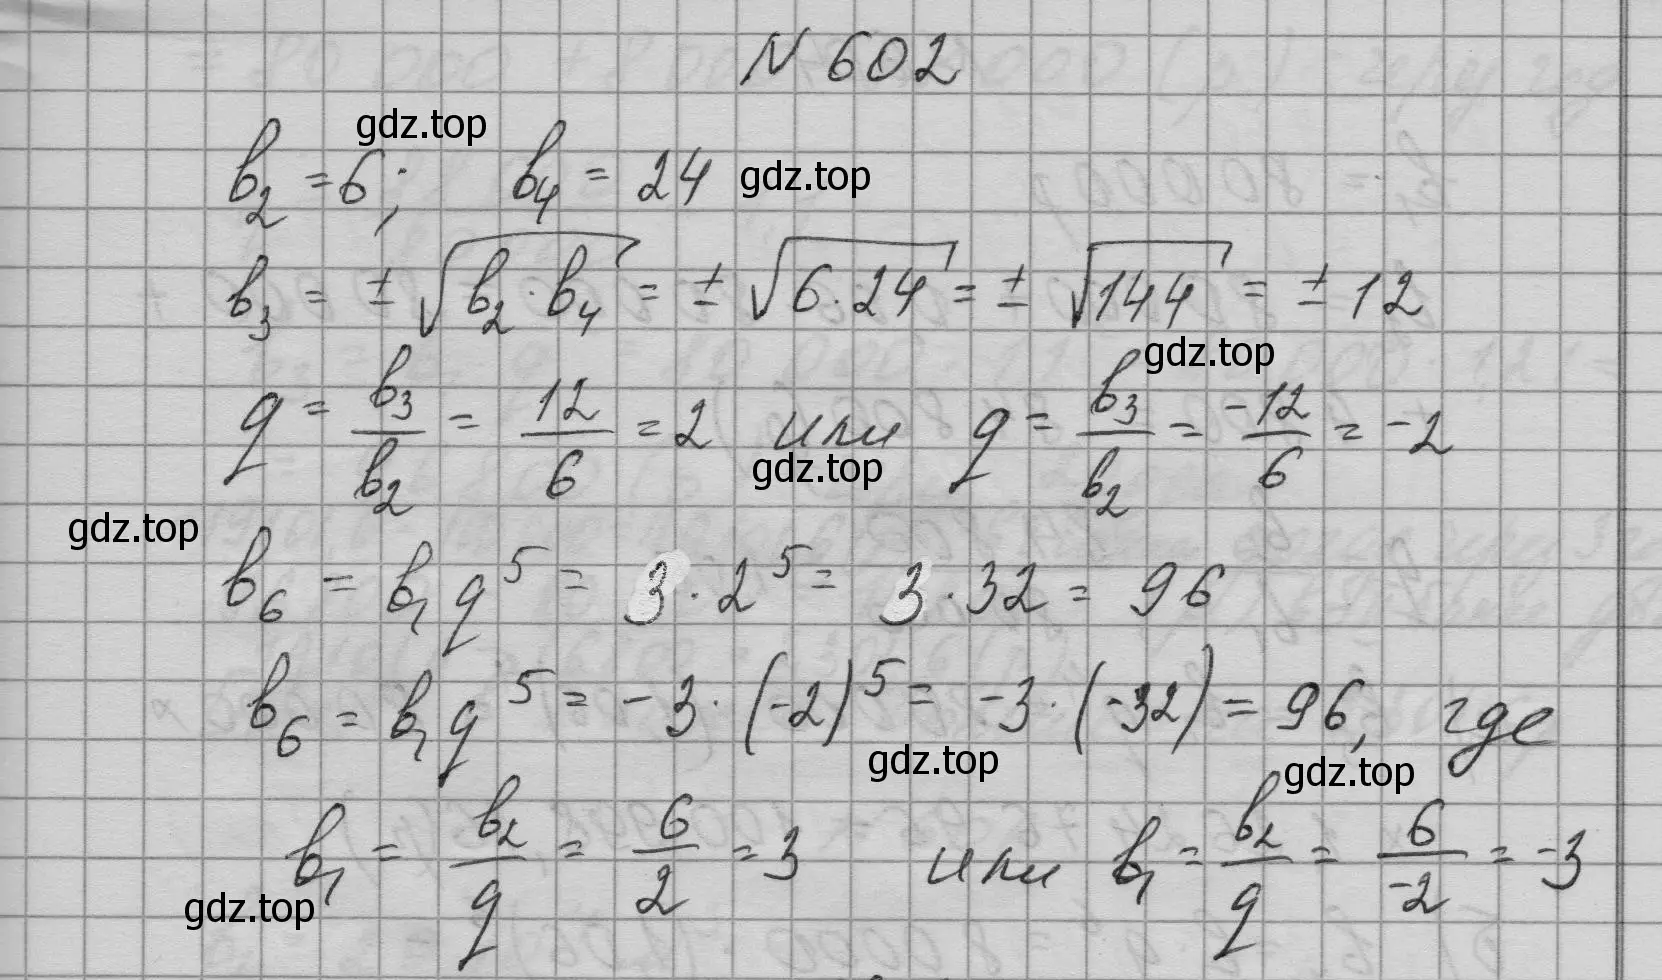 N 602
gdz.top
b₂ = 6; b₄ = 24 gdz.top
b₃ = ± √(b₂ · b₄) = ± √(6 · 24) = ± √144 = ± 12
gdz.top
q = b₃/b₂ = 12/6 = 2 или q = b₃/b₂ = -12/6 = -2
gdz.top
gdz.top
b₆ = b₁q⁵ = 3 · 2⁵ = 3 · 32 = 96
b₆ = b₁q⁵ = -3 · (-2)⁵ = -3 · (-32) = 96, где
gdz.top gdz.top
b₁ = b₂/q = 6/2 = 3 или b₁ = b₂/q = 6/-2 = -3
gdz.top